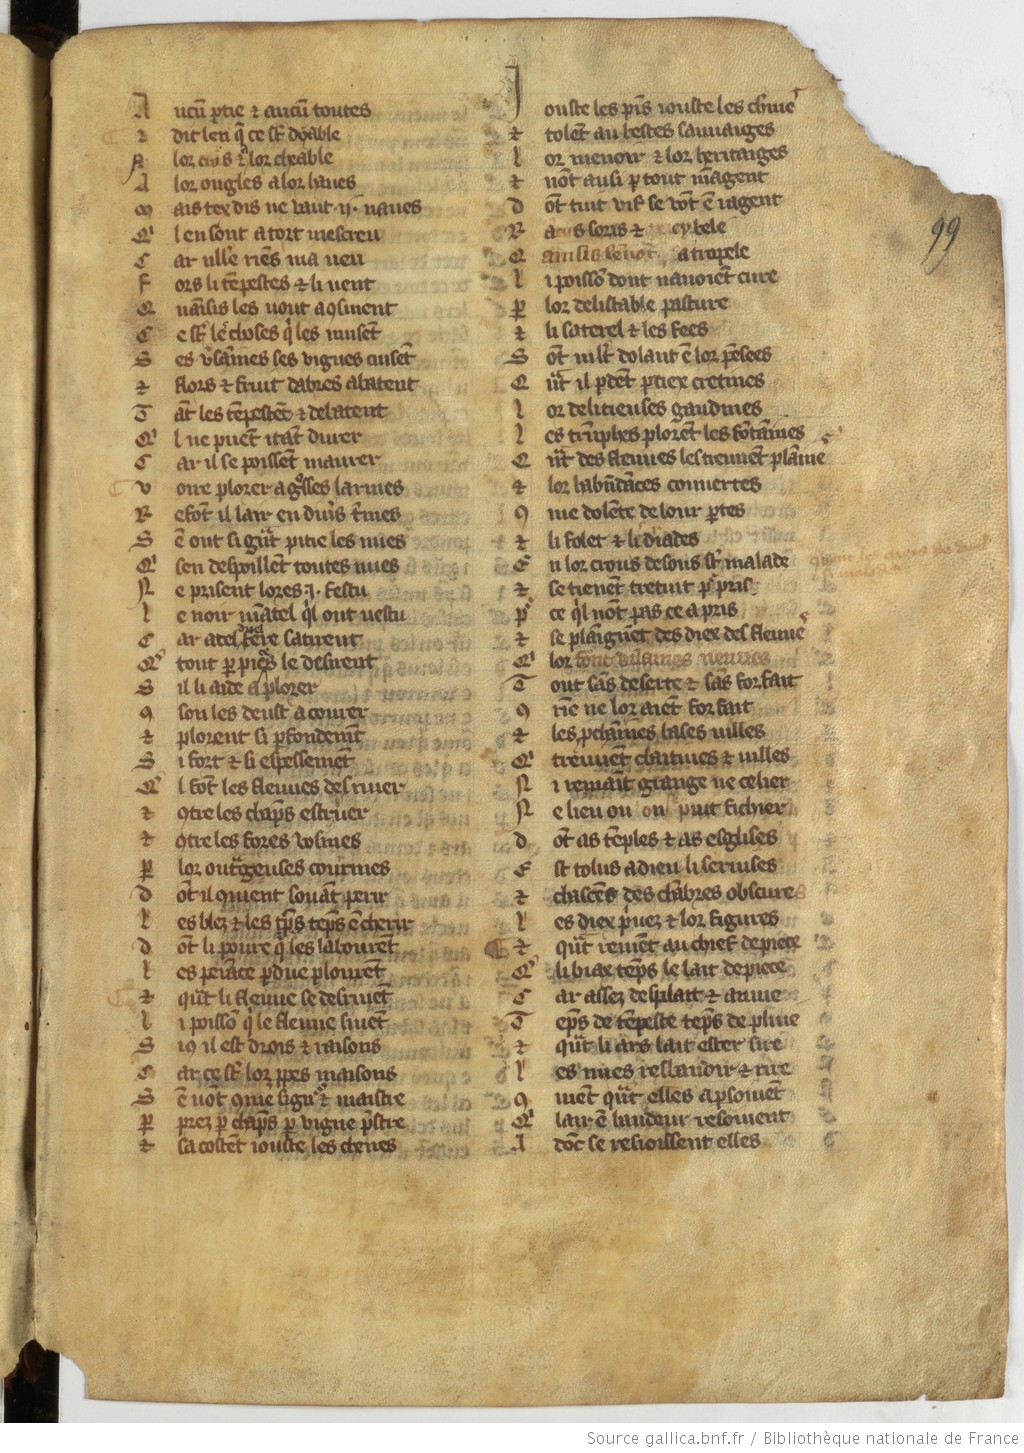 A ucũ ptie ⁊ aucũ toutes
⁊ dit len q̃ ce st̃ dyable
A lor cros ⁊ a lor cheable
A lor ongles a lor haues
m ais tex dis ne vaut .ij. naues
Q' l en sont a tort mescreu
C ar nulle riẽs ni a neu
F ors li tẽpestes ⁊ li uent
Q uãsis les uont aqsiuent
C e st̃ les choses q̇ les nuisẽt
S es vsãmes ses vignes cuisẽt
⁊ flors ⁊ fruit dabres abatent
T ãt les tẽpestẽt ⁊ debatent
Q' l ne puẽt itãt durer
C ar il se poissẽt maurer
v oire plorer a gsses larmes
R efõt il lair en duùs t̃mes
S ẽ ont si gñt pitie les nues
Q' sen despoillẽt toutes nues
N e prisent lores .j. festu
L e noir mãtel ql ont uestu
C ar a tel fere satirent
Q' tout par pieces le desirent
S il li aide a plorer
9 son les deust acorer
⁊ plorent si pfondemẽt
S i fort ⁊ si espessemẽt
Q' l fõt les fleuues desriuer
⁊ 9tre les chãps estriuer
⁊ 9tre les fores voisines
p lor outgeuses courines
D ot il 9uient souãt perir
L es blez ⁊ les tps teps ẽcherir
D ot li poure q̇ les labourẽt
L es perãce pdue plourẽt
⁊ qñt li fleuue se desriuẽt
L i poissõ q̇ le fleuue siuẽt
S i9 il est drois ⁊ raisons
C ar ce st̃ lor ppes maisons
S ẽ uõt 9me signr ⁊ maistre
p prez p chãps p vigne pstre
⁊ sa costẽt iouste les chenes
J ouste les pis iouste les ch̃me
⁊ tolẽt au bestes sauuaiges
L or menoir ⁊ lor heritaiges
⁊ uõt ausi p tout nagent
D ot tuit vif se võt ẽragent
B acus sores ⁊ cybele
Q ansis senuõt atropele
L i poissõ dont nauoiẽt cure
p lor delistable pasture
⁊ li saterel ⁊ les fees
S ot mlt dolant ẽ lor pẽsees
Q ñt il pdẽt p tiex cretines
L or delitieuses gaudines
L es trũphes plorẽt les fõtãines
Q ñt des fleuues les tiennẽt plãine
⁊ lor habũdãces couuertes
9 me dolẽte de lour ptes
⁊ li folet ⁊ li diades
E n lor crous desous st̃ malade
⁊ se tienẽt trẽtuit pr pris
p' ce ql nõt pas ce apris
⁊ se plãignẽt des diex des fleuue
Q' lor font vilaines neuues
T out sãs deserte ⁊ sãs forfait
9 riẽ ne lor aiẽt forfait
⁊ les pchãines bases uilles
Q' treuuẽt chaitiues ⁊ uilles
N i remaĩt grange ne celier
N e lieu ou on puit fichier
D ot as tẽples ⁊ as esglises
E st tolus a dieu li seruises
⁊ chascẽs des chãbres obscures
L es diex p̃uez ⁊ lor figures
⁊ qũt reuiẽt au chief de piece
Q' li biax teps le lait depiece
C ar assez desplait ⁊ anuie
T eps de tẽpeste teps de pluie
⁊ qũt li ars lait ester sire
L es nues resbaudir ⁊ rire
9 uiẽt qñt elles apsoiuẽt
Q' lair ẽ baudeur resoiuent
A dõc se resioissent elles
99
Source gallica.bnf.fr / Bibliothèque nationale de France